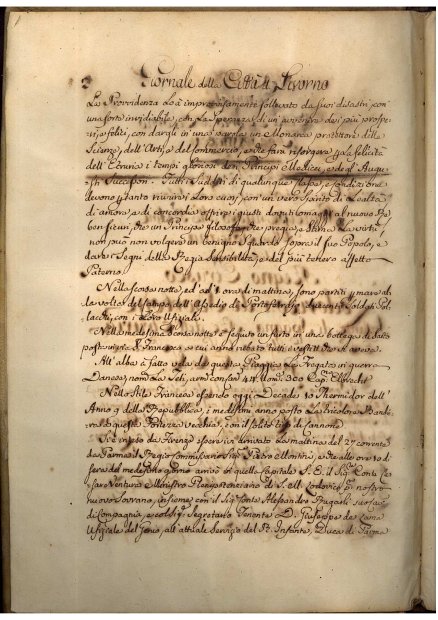 Giornale della Città di Livorno
La Provvidenza lo à improvvisamente sollevato da suoi disastri, con
una sorte invidiabile, con la speranza di un avvenire de i più prospe-
ri, e felici, con dargli in una parola un Monarca protettore delle
Scienze, dell'Arti, e del Commercio, e che farà risorgere per la felicità
dell'Etruria i tempi gloriosi dei Principi Medicei, e degl'Augu-
sti Successori. Tutti i Sudditi di qualunque classe, e condizione
devono intanto riunire i loro cuori, con un vero spirito di Lealtà
di amore, e di concordia offrire i giusti dovuti omaggi al nuovo Re
ben sicuri, che un Principe filosofo che pregia, e stima la virtù
non può non volgere un benigno sguardo sopra il suo Popolo, e
dare i segni della Regia sensibilità, e del più tenero affetto
Paterno.
Nella scorsa notte, ed ad ora di mattina, sono partiti per mare al-
la volta del Campo dell'Assedio di Portoferrajo Soldati Po-
lacchi, con i loro Ufiziali.
Nella medesima scorsa notte è seguito un furto in una bottega di
posta in via S. Francesco, a cui anno rubato tutti
All'alba à fatto vela da questa Piaggia la Fregata in guerra
Danese, nom. La Teti, arm. con Can. 44 Uom. 300 Cap.
Nello stile Francese essendo oggi Decade 10 Thermidor dell'
Anno 9 della Repubblica, i medesimi anno posto la tricolore Bandie-
ra a questa Fortezza vecchia, e con il solito tiro di Cannone.
Si è inteso da Firenze esservi arrivato la mattina del 27 corrente
da Parma il Regio Commissario Sig. Pietro Mentini, e che alle ore 10 di
sera del medesimo giorno arrivò in quella Capitale S. E. il Sig. Conte Ce-
sare Ventura e Ministro Plenipotenziario di S. M. Lodovico Pr. nostro
nuovo Sovrano, insieme con il Sig. Conte Alessandro
di Compagnia, e col Sig. Segretario Tenente D. Giuseppe de Lama
Ufiziale del Genio, all'attuale Servizio del R. Infante, Duca di Parma